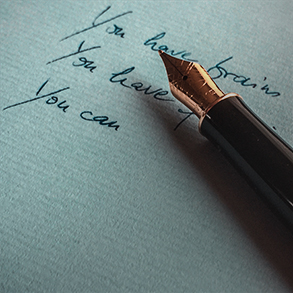 You have brains
You have
You can